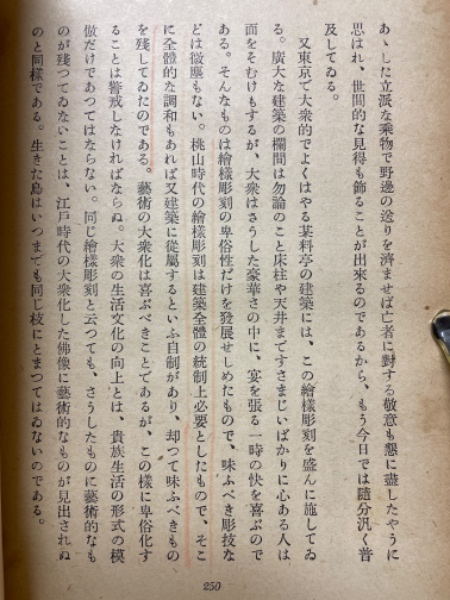 あゝした立派な乘物で野邊の送りを濟ませば亡者に對する敬意も懇に盡したやうに
思はれ、世間的な見得も飾ることが出來るのであるから、もう今日では隨分汎く普
及してゐる。
又東京で大衆的でよくはやる某料亭の建築には、この繪樣彫刻を盛んに施してゐ
る。廣大な建築の欄間は勿論のこと床柱や天井まですさまじいばかりに心ある人は
面をそむけもするが、大衆はさうした豪華さの中に、宴を張る一時の快を喜ぶので
ある。そんなものは繪樣彫刻の卑俗性だけを發展せしめたもので、味ふべき彫技な
どは微塵もない。桃山時代の繪樣彫刻は建築全體の統制上必要としたもので、そこ
に全體的な調和もあれば又建築に從屬するといふ自制があり、却つて味ふべきもの
を殘してゐたのである。藝術の大衆化は喜ぶべきことであるが、この樣に卑俗化す
ることは警戒しなければならぬ。大衆の生活文化の向上とは、貴族生活の形式の模
倣だけであつてはならない。同じ繪樣彫刻と云つても、さうしたものに藝術的なも
のが殘つてゐないことは、江戸時代の大衆化した佛像に藝術的なものが見出されぬ
のと同樣である。生きた鳥はいつまでも同じ枝にとまつてはゐないのである。
250